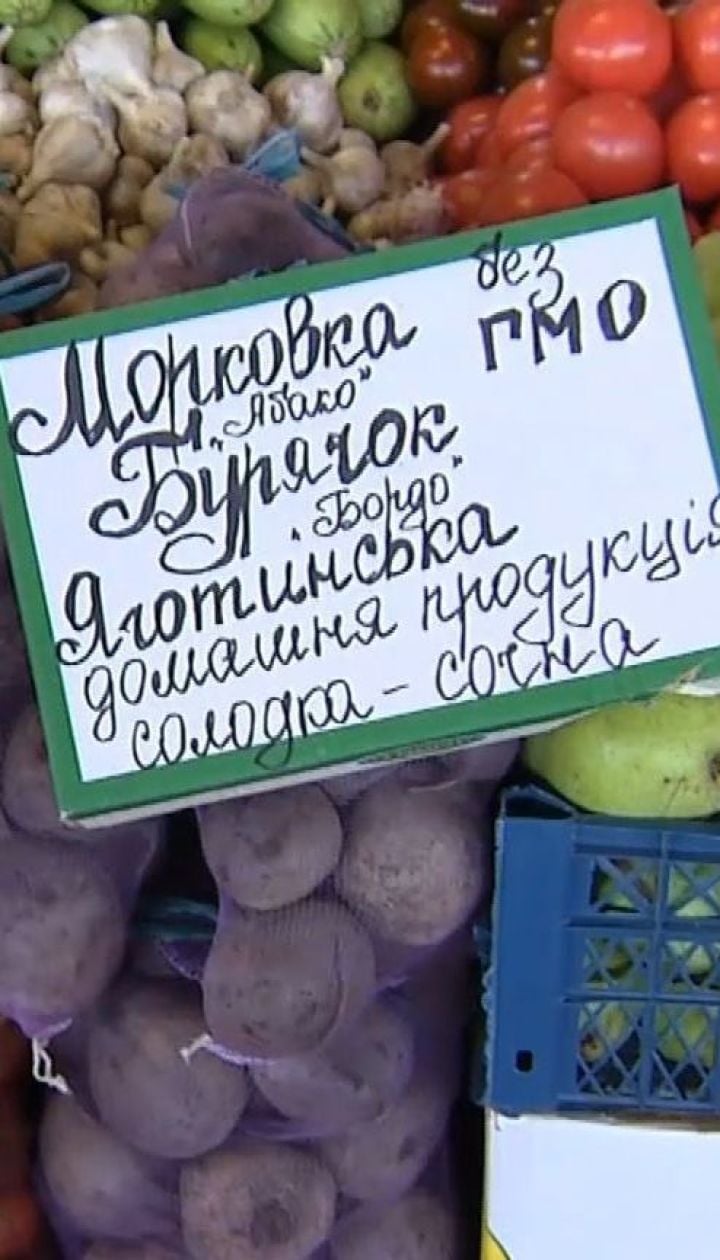 Морковка
без
ГМО
"Абако"
Бурячок
"Бордо"
Яготинська
домашня продукція
солодка - сочна